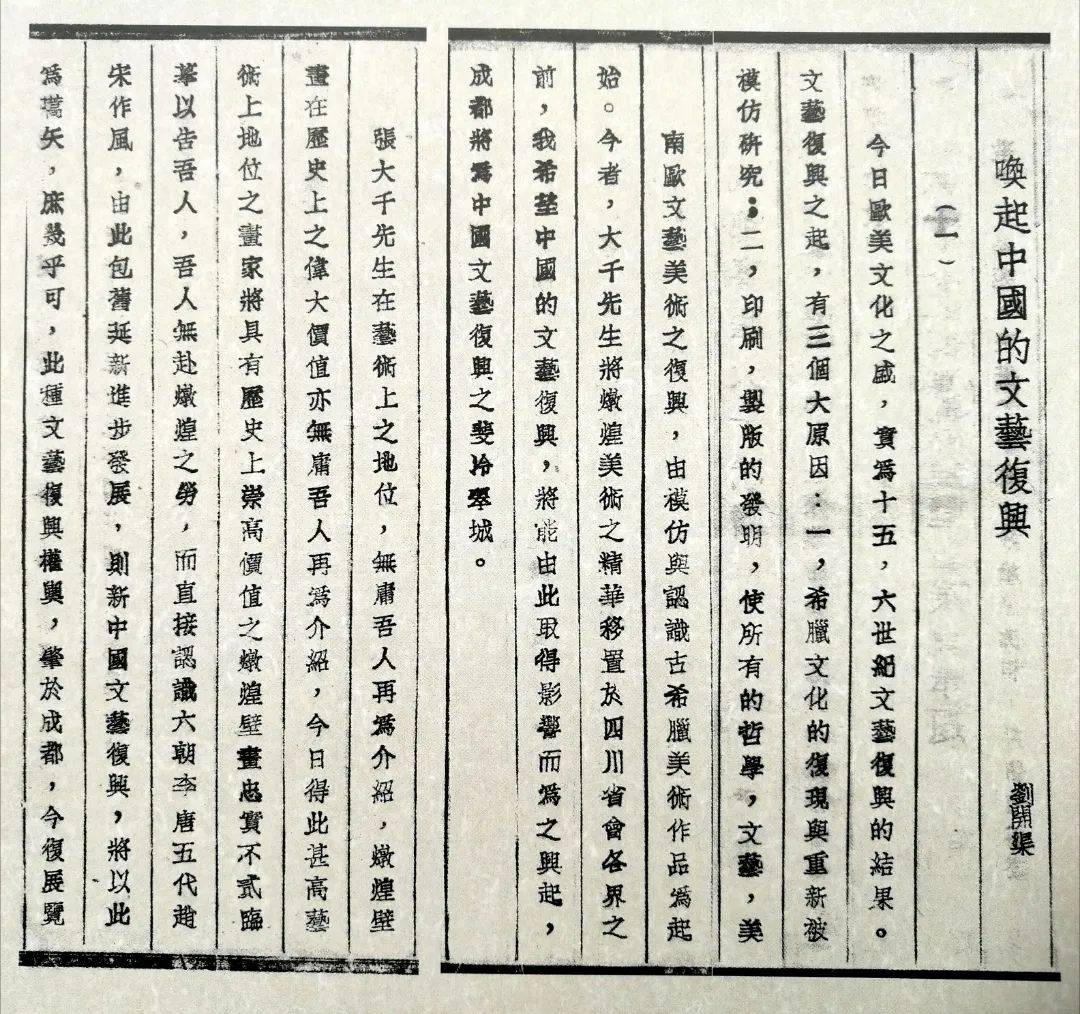 喚起中國的文藝復興
劉開渠
（一）
今日歐美文化之盛，實爲十五，六世紀文藝復興的結果。
文藝復興之起，有三個大原因：一，希臘文化的復現與重新被
模仿研究；二，印刷，製版的發明，使所有的哲學，文藝，美
南歐文藝美術之復興，由模仿與認識古希臘美術作品爲起
始。今者，大千先生將燉煌美術之精華移置於四川省會各界之
前，我希望中國的文藝復興，將能由此取得影響而爲之興起，
成都將爲中國文藝復興之斐冷翠城。
張大千先生在藝術上之地位，無庸吾人再爲介紹，燉煌壁
畫在歷史上之偉大價值亦無庸吾人再爲介紹，今日得此甚高藝
術上地位之畫家將具有歷史上崇高價值之燉煌壁畫忠實不貳臨
摹以告吾人，吾人無赴燉煌之勞，而直接認識六朝李唐五代趙
宋作風，由此包舊延新進步發展，則新中國文藝復興，將以此
爲嚆矢，庶幾乎可，此種文藝復興權輿，肇於成都，今復展覽